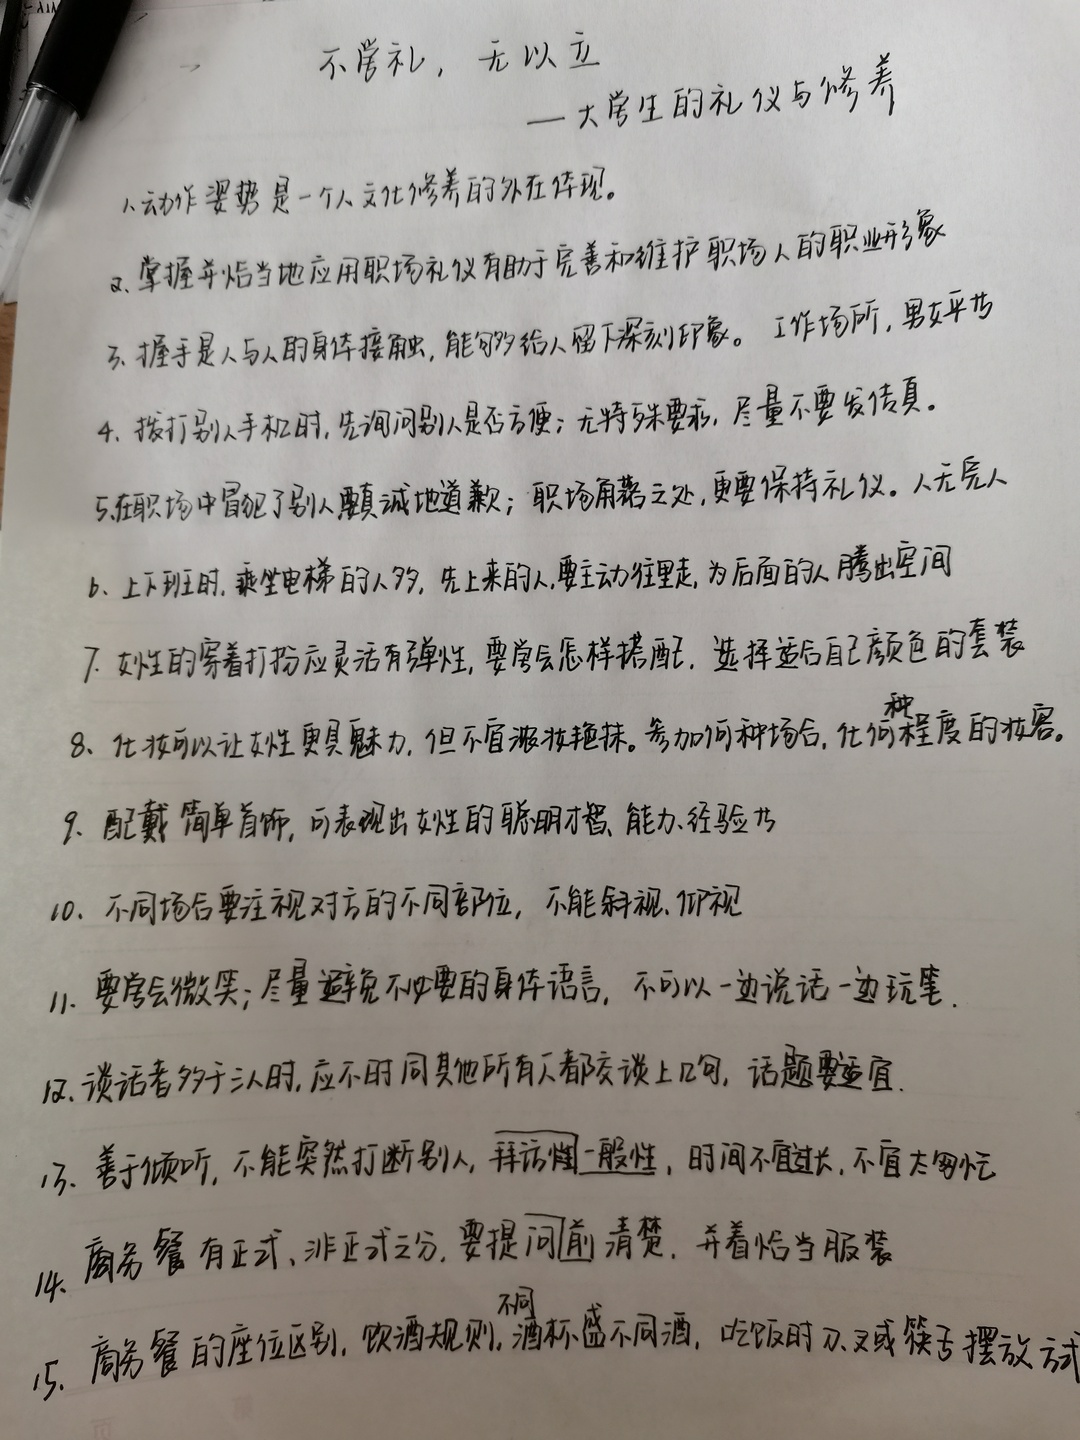 不学礼，无以立
—大学生的礼仪与修养
1、动作姿势是一个人文化修养的外在体现。
2、掌握并恰当地应用职场礼仪有助于完善和维护职场人的职业形象
3、握手是人与人的身体接触，能够给人留下深刻印象。工作场所，男女平等
4、拨打别人手机时，先询问别人是否方便；无特殊要求，尽量不要发传真。
5、在职场中冒犯了别人要真诚地道歉；职场角落之处，更要保持礼仪。人无完人
6、上下班时，乘坐电梯的人多，先上来的人，要主动往里走，为后面的人腾出空间
7、女性的穿着打扮应灵活有弹性，要学会怎样搭配，选择适合自己颜色的套装
8、化妆可以让女性更具魅力，但不宜浓妆艳抹。参加何种场合，化何种程度的妆容。
9、配戴简单首饰，可表现出女性的聪明才智、能力、经验等
10、不同场合要注视对方的不同部位，不能斜视、仰视
11、要学会微笑；尽量避免不必要的身体语言，不可以一边说话一边玩笔.
12、谈话者多于三人时，应不时同其他所有人都交谈上几句，话题要适宜.
13、善于倾听，不能突然打断别人，拜访性一般性，时间不宜过长，不宜太匆忙
14、商务餐有正式、非正式之分，要提问前清楚，并着恰当服装
15、商务餐的座位区别，饮酒规则，不同酒杯盛不同酒，吃饭时刀、叉或筷子摆放方式